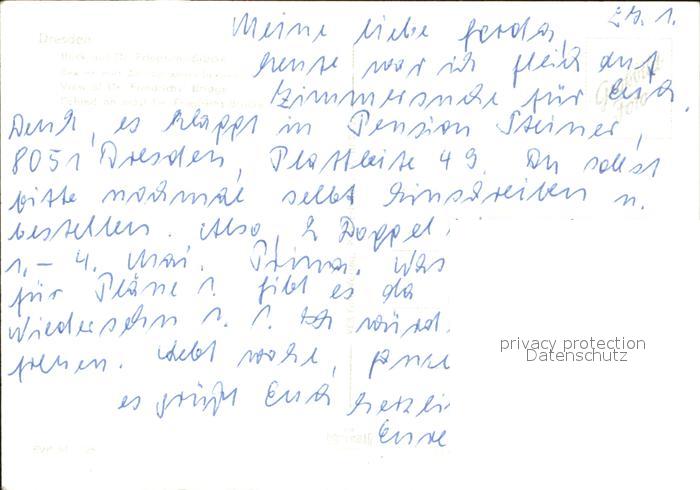 29. 1.
Meine liebe Gerda,
heute war ich gleich auf
Zimmersuche für Euch.
Denk, es klappt in Pension Steiner,
8051 Dresden, Plattleite 49. Du sollst
bitte nochmal selbst hinschreiben u.
bestellen. Also, 2 Doppel
1. – 4. Mai. Prima. Was
für Pläne gibt es da
Wiedersehn
freuen. Lebt wohl,
es grüßt Euch herzli
Eure
Dresden
Blick auf Dr.-Friedrichs-Brücke
View of Dr. Friedrichs Bridge
privacy protection
Datenschutz